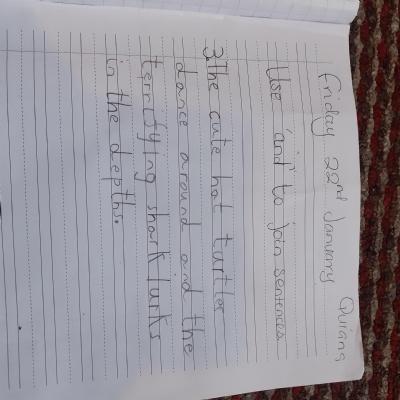 Friday 22nd January
Use 'and' to join sentences
3.The cute hot turtles
dance around and the
terrifying shark lurks
in the depths.